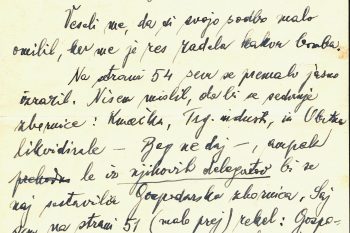 Veseli me, da si svojo sodbo malo
omilil, ker me je res zadela kakor bomba.
Na strani 54 sem se premalo jasno
izrazil. Nisem mislil, da bi se sedanje
zbornice: Kmečka, Trg. indust. in Obrtna
likvidirale – Bog ne daj –, ampak
le iz njihovih delegatov bi se
naj postavila Gospodarska zbornica. Saj
sem na strani 51 (malo prej) rekel: Gospo-